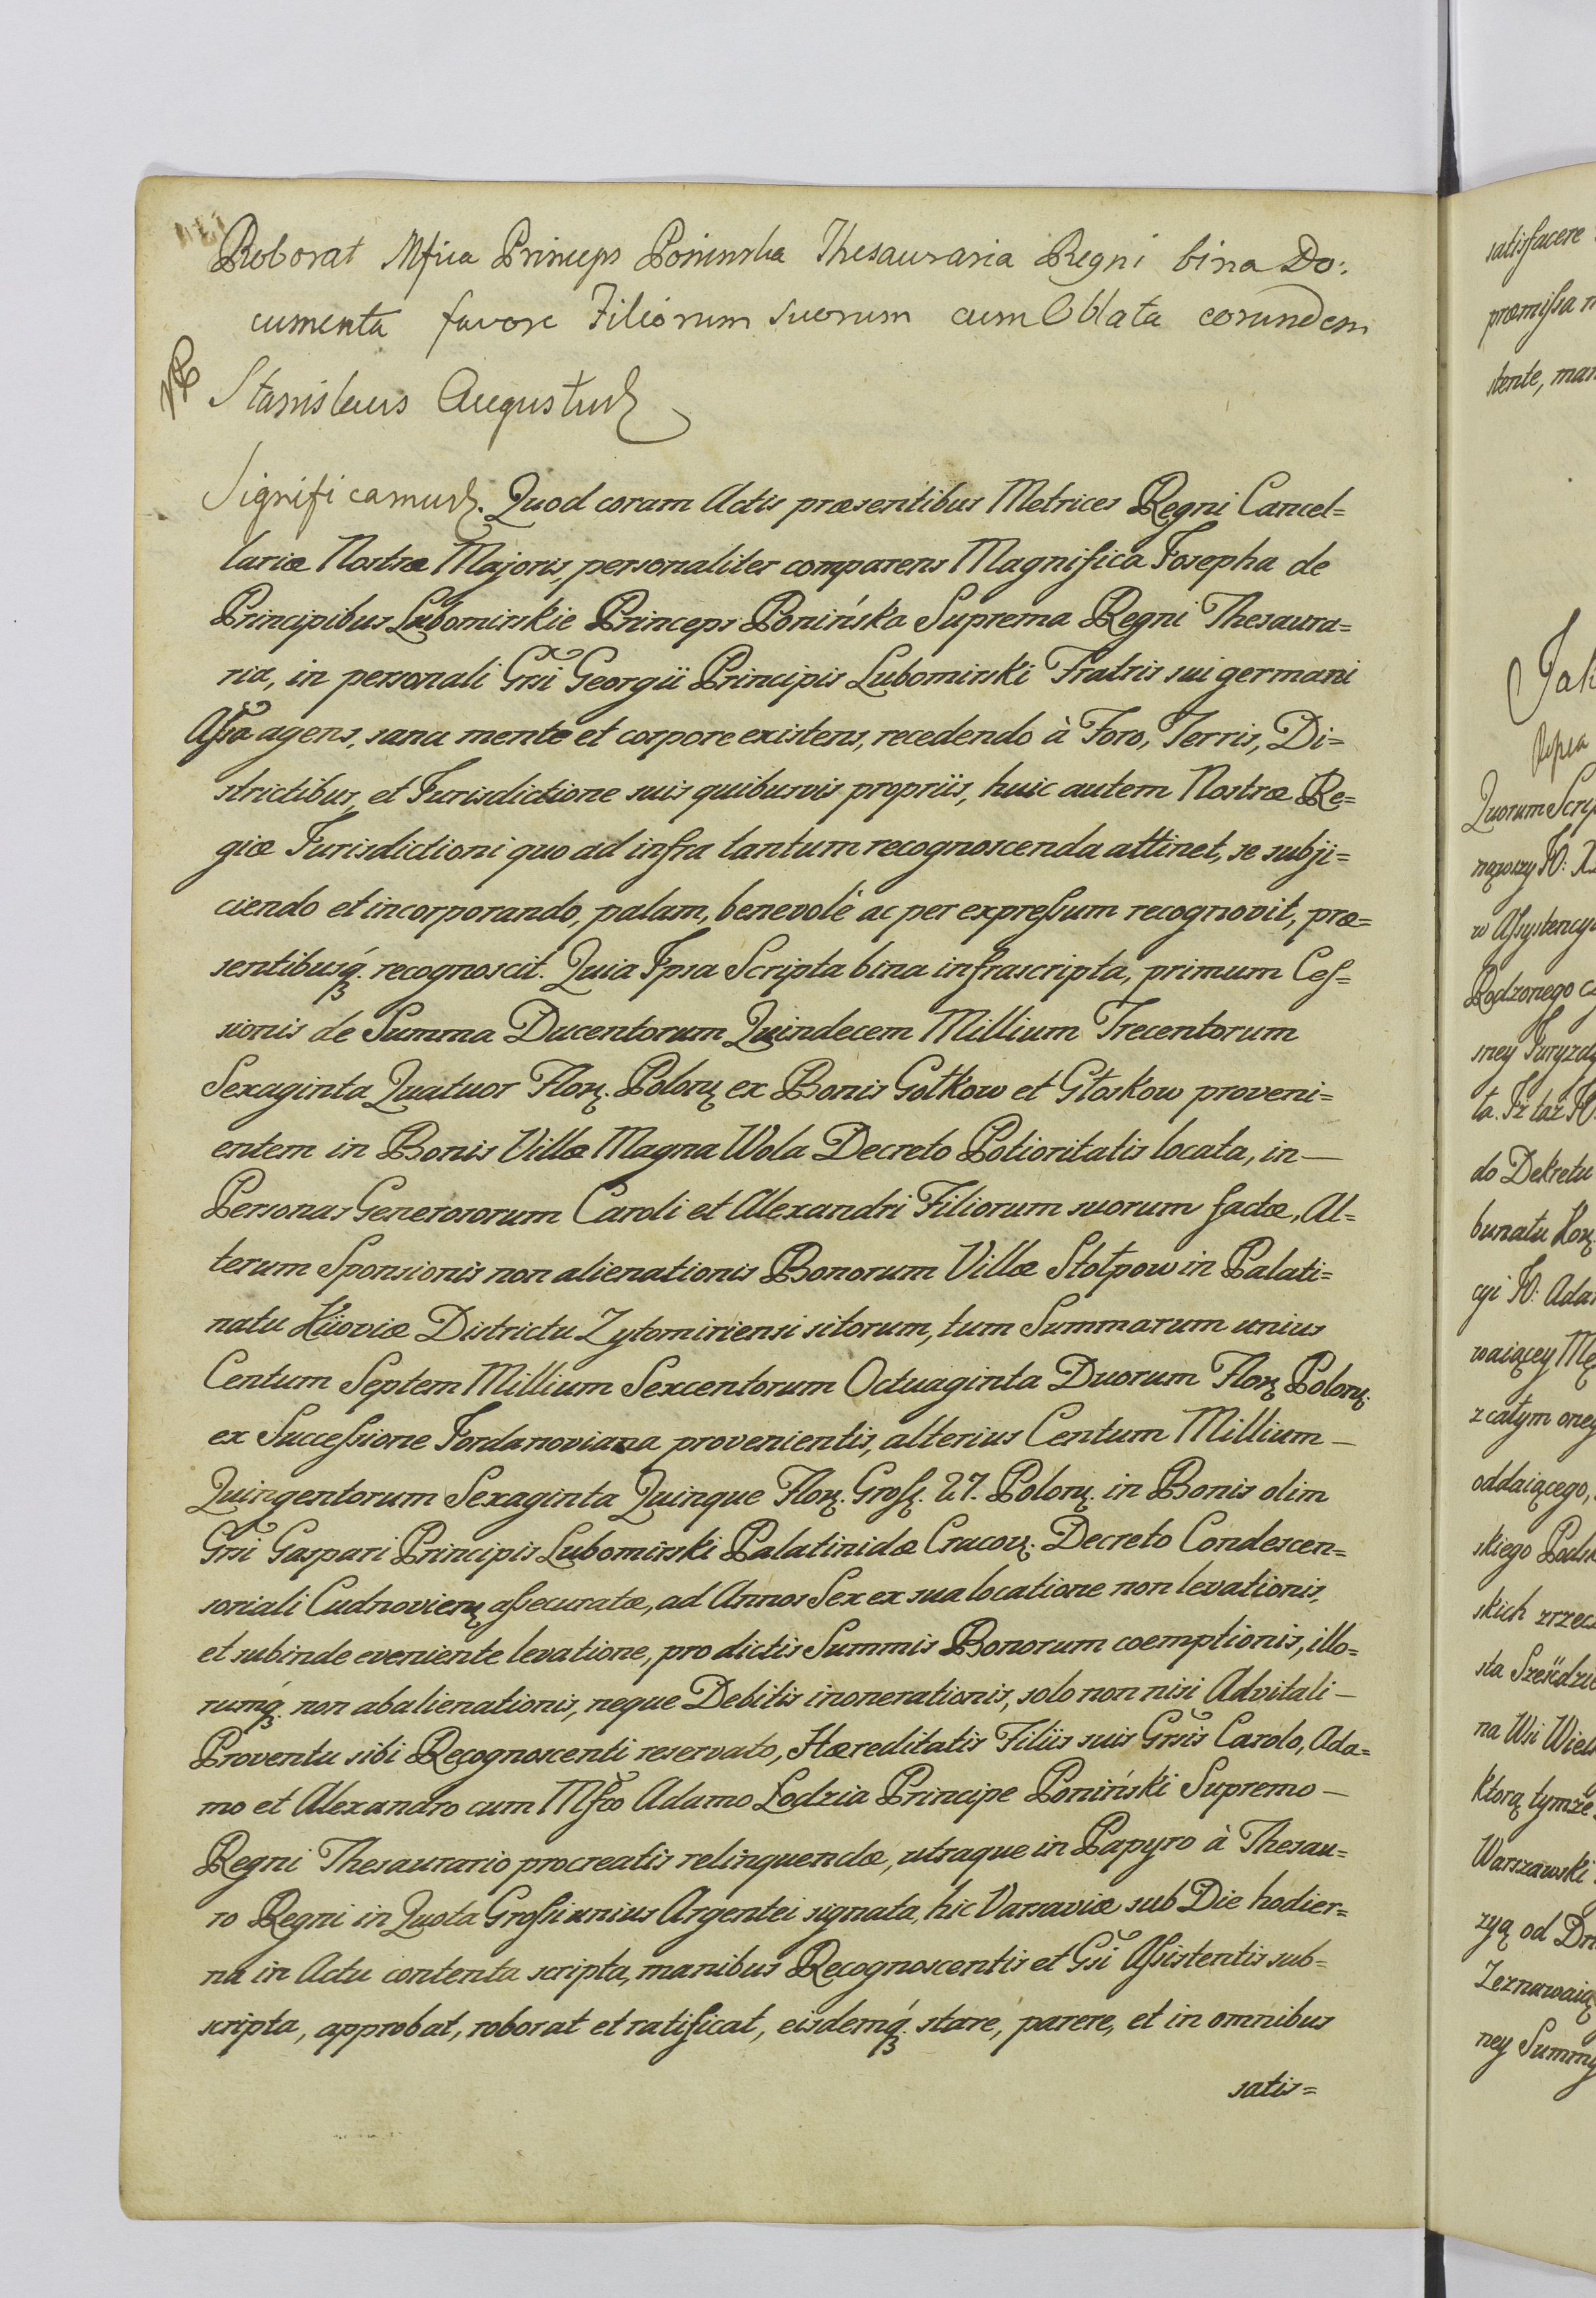 Roborat Mfica Princeps Poninska Thesauraria Regni bina Do:
cumenta favore Filiorum suorum cum Oblata eorundem
Stanislaus Augustus
Significamus. Quod coram Actis præsentibus Metrices Regni Cancel=
lariæ Nostræ Majoris, personaliter comparens Magnifica Josepha de
Principibus Lubomirskie Princeps Ponińska Suprema Regni Thesaura=
ria, in personali Grsi Georgii Principis Lubomirski Fratris sui germani
Assa agens, sana mente et corpore existens, recedendo à Foro, Terris, Di=
strictibus, et Jurisdictione suis quibusvis propriis, huic autem Nostræ Re=
giæ Jurisdictioni quo ad infra tantum recognoscenda attinet, se subji=
ciendo et incorporando, palam, benevolè ac per expressum recognovit, præ=
sentibusq́ꝫ. recognoscit. Quia Ipsa Scripta bina infrascripta, primum Ces=
sionis de Summa Ducentorum Quindecem Millium Trecentorum
Sexaginta Quatuor Florꝫ. Polonꝫ ex Bonis Gołkow et Głoskow proveni=
entem in Bonis Villæ Magna Wola Decreto Potioritatis locata, in—
Personas Generosorum Caroli et Alexandri Filiorum suorum factæ, Al=
terum Sponsionis non alienationis Bonorum Villæ Słotpow in Palati=
natu Kijoviæ Districtu Zytomiriensi sitorum, tum Summarum unius
Centum Septem Millium Sexcentorum Octuaginta Duorum Florꝫ Polonꝫ.
ex Successione Jordanoviana provenientis, alterius Centum Millium—
Quingentorum Sexaginta Quinque Florꝫ. Grosꝫ. 27. Polonꝫ. in Bonis olim
Grsi Gaspari Principis Lubomirski Palatinidæ Cracovꝫ. Decreto Condescen=
soriali Cudnovienꝫ assecuratæ, ad Annos Sex ex sua locatione non levationis,
et subinde eveniente levatione, pro dictis Summis Bonorum coemptionis, illo=
rumq́ꝫ. non abalienationis, neque Debitis inonerationis, solo non nisi Advitali—
Proventu sibi Recognoscenti reservato, Hæreditatis Filiis suis Grsis Carolo, Ada=
mo et Alexandro cum Mfco Adamo Lodzia Principe Poniński Supremo—
Regni Thesaurario procreatis relinquendæ, utraque in Papyro à Thesau=
ro Regni in Quota Grossi unius Argentei signata, hic Varsaviæ sub Die hodier=
na in Actu contenta scripta, manibus Recognoscentis et Gsi Assistentis sub=
scripta, approbat, roborat et ratificat, eisdemq́ꝫ. stare, parere, et in omnibus
satis=
satisfacere
præmissa
stente,
Quorum
w Assystencyi
Rodzonego
do Dekretu
bunatu Korꝫ
cyi JO: Adam
waiącey
z całym oney
oddaiącego,
skiego
skich zrzec
na Wsi
ktorą tymże
Warszawski
zyą od
ney Summy